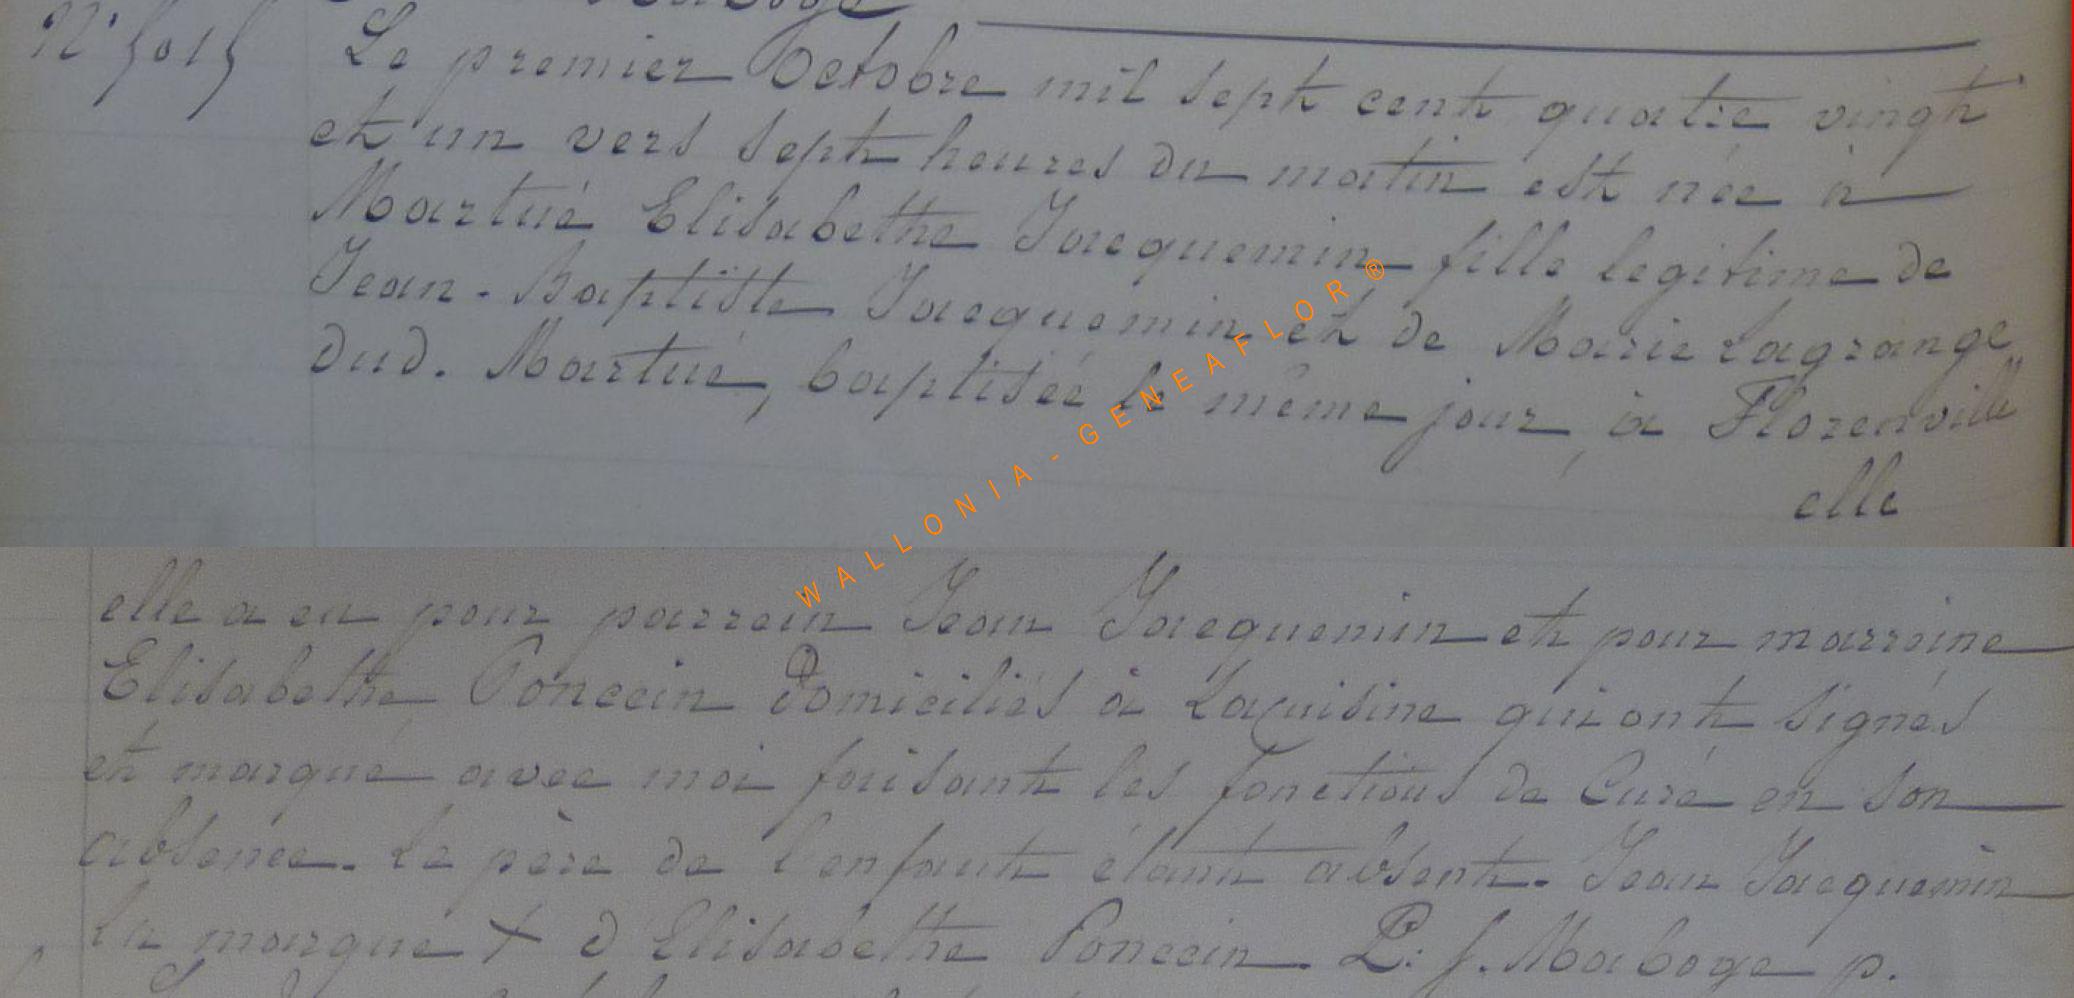 Maboge
N° 5015 Le premier Octobre mil sept cent quatre vingt
et un vers sept heures du matin est née à
Martué Elisabethe Jacquemin fille legitime de
Jean-Baptiste Jacquemin et de Marie Lagrange
dud. Martué, baptisée le même jour, à Florenville
elle
elle a eu pour parrain Jean Jacquemin et pour marraine
Elisabethe Poncein domiciliés à Lacuisine qui ont signés
et marqué avec moi faisant les fonctions de Curé en son
absence. Le père de l'enfant étant absent. Jean Jacquemin
La marque + d'Elisabethe Poncein. P. f. Maboge p.
WALLONIA - GENEAFLOR®